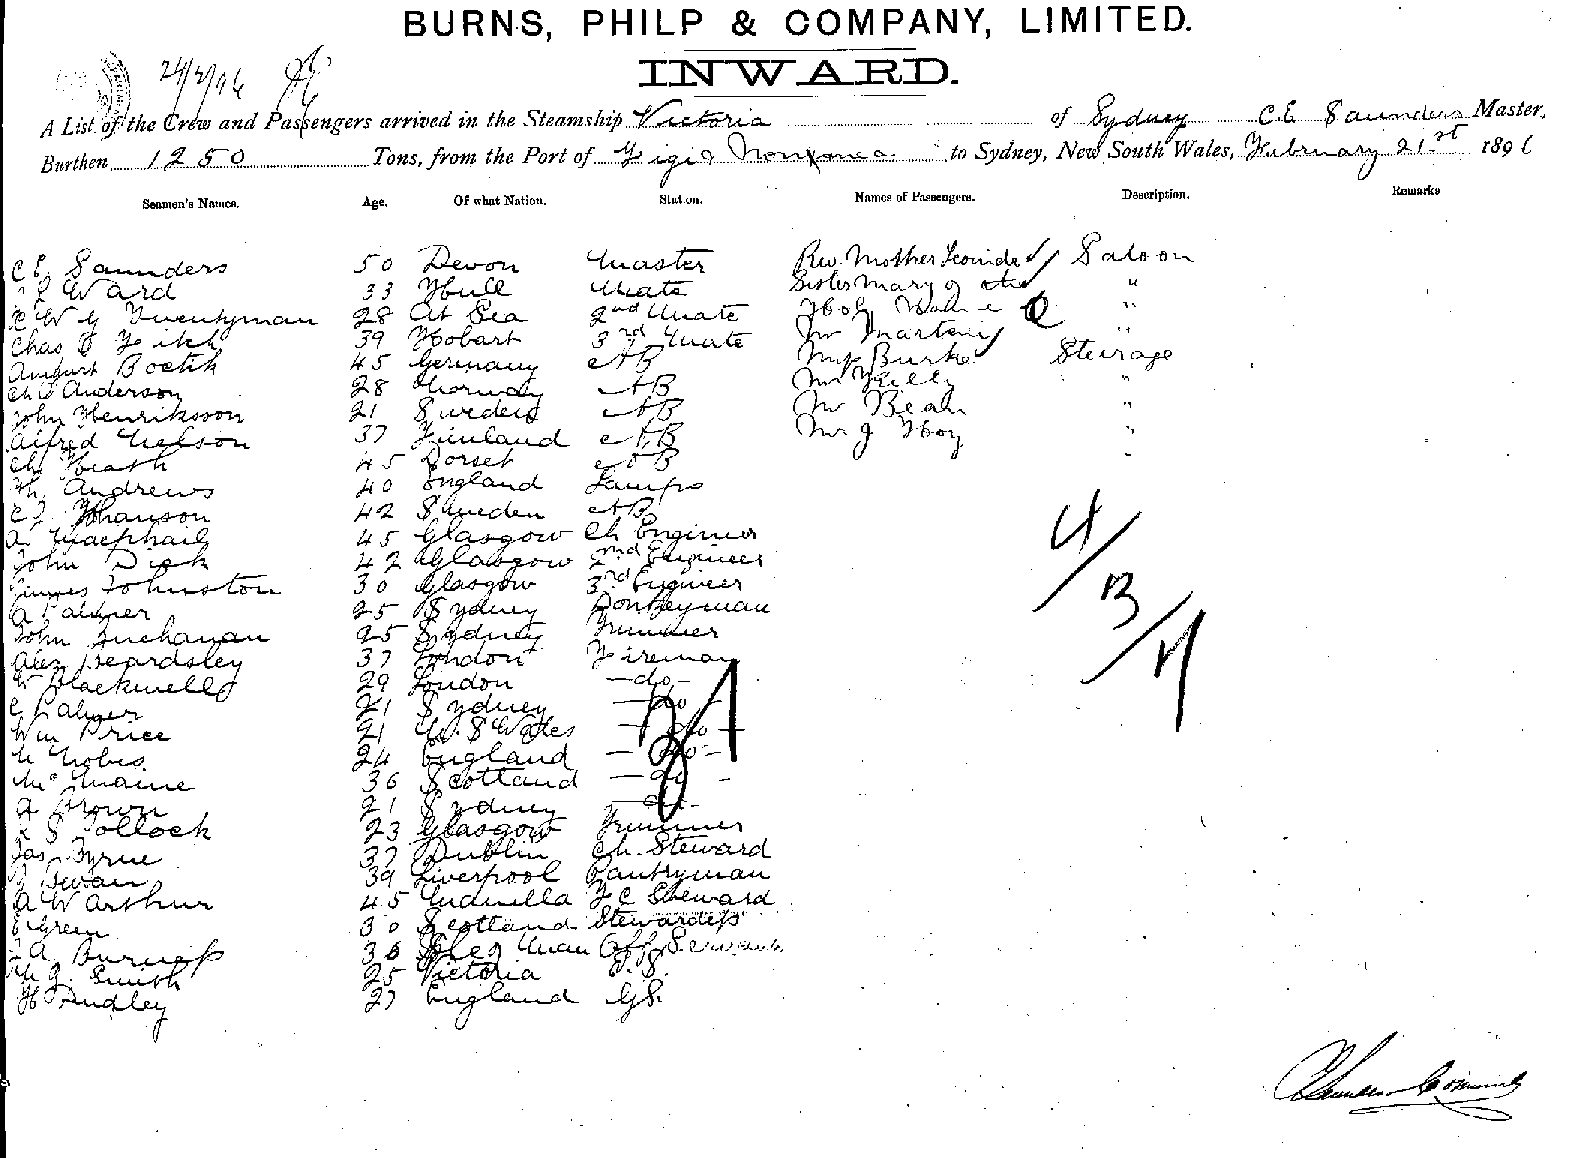 BURNS, PHILP & COMPANY, LIMITED.
INWARD.
24/2/96
A List of the Crew and Passengers arrived in the Steamship Victoria of Sydney C.E. Saunders Master,
Burthen 1250 Tons, from the Port of Noumea to Sydney, New South Wales, February 21st 1896
Seamen's Names. Age. Of what Nation. Station. Names of Passengers. Description. Remarks
CE Saunders 50 Devon Master Rev. Mother Saloon
Ward 33 Hull Mate Sister Mary of the "
W G Twentyman 28 At Sea 2nd Mate Holy Name "
Chas 39 Hobart 3rd Mate Mr Martens "
August 45 Germany AB Burke Steerage
Ch Anderson 28 Norway AB Mr Kelly "
John Henriksson 21 Sweden AB Mr Bean "
Alfred Nelson 37 Finland AB Mr J Hoy "
Ch Heath 45 Dorset AB "
Andrews 40 England Lamps
Johanson 42 Sweden AB
A Macphail 45 Glasgow Ch Engineer
John Dick 42 Glasgow 2nd Engineer
James Johnston 30 Glasgow 3rd Engineer
25 Sydney Donkeyman
John Buchanan 25 Sydney Trimmer
Alex Beardsley 37 London Fireman
Blackwell 29 London - do -
21 Sydney - do -
Wm Price 21 N. S Wales - do -
24 England - do -
36 Scotland - do -
A Brown 21 Sydney - do -
S Pollock 23 Glasgow Trimmer
Jas Byrne 37 Dublin Ch. Steward
Swan 39 Liverpool Pantryman
A W Arthur 45 F C Steward
Green 30 Scotland Stewardess
A Burness 36 Isle of Man Off Servant
G Smith 25 Victoria G.S.
H Dudley 27 England G.S.
4/13/17
31